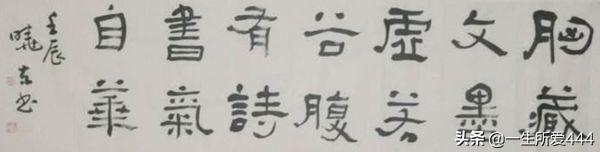 胸藏
文墨
虚若
谷腹
有詩
書氣
自華
壬辰
曉东书
头条 @一生所爱444